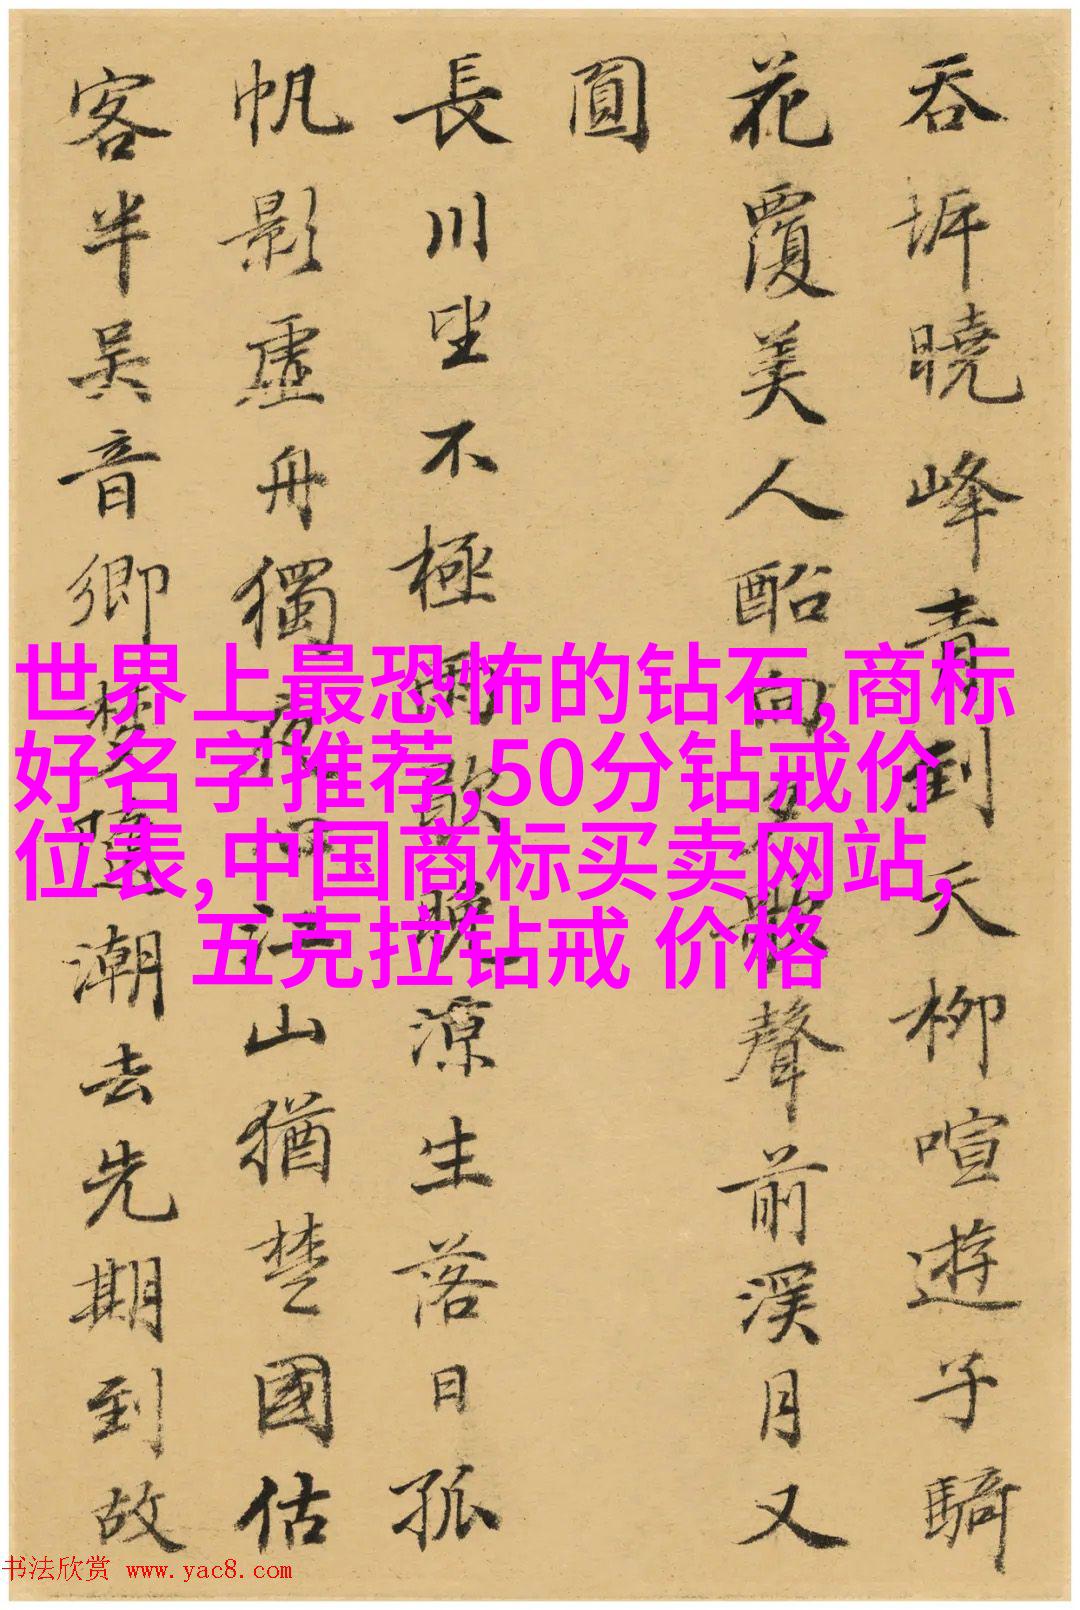 世界上最恐怖的钻石,商标
好名字推荐,50分钻戒价
位表,中国商标买卖网站,
五克拉钻戒 价格
吞坼曉峰青到天柳喧遊子騎
花覆美人向夕聲前溪月又
圓
長川坐不極雨歇晚涼生落日孤
帆影虛舟獨夜心江山猶楚國估
客半吳音鄉夢隨潮去先期到故
书法欣赏 www.yac8.com